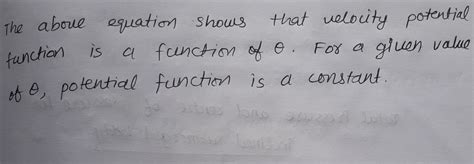 The above equation shows that velocity potential
function is a function of θ. For a given value
of θ, potential function is a constant.